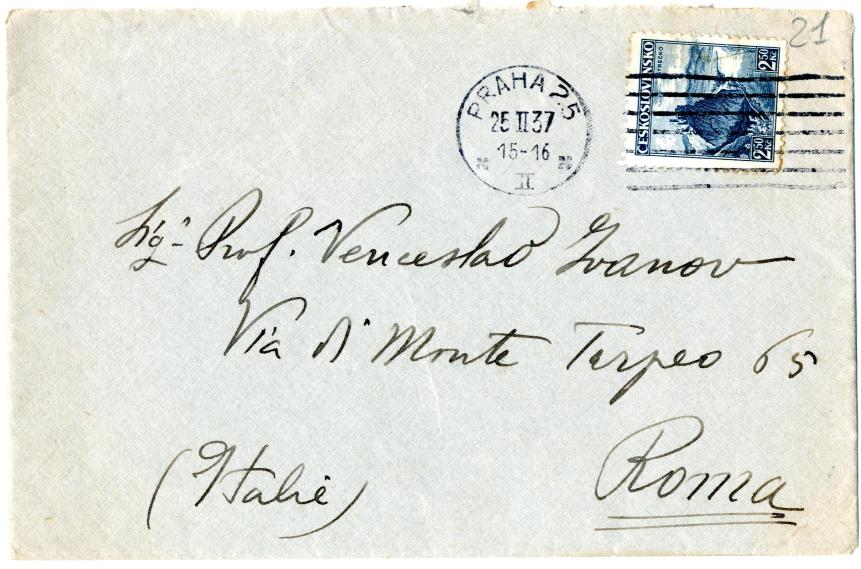 21
PRAHA 25
25 II 37
15-16
II
ČESKOSLOVENSKO
STREČNO
2 50 Kč
2 50 Kč
Sig. Prof. Venceslao Ivanov
Via di Monte Tarpeo 65
Roma
(Italie)